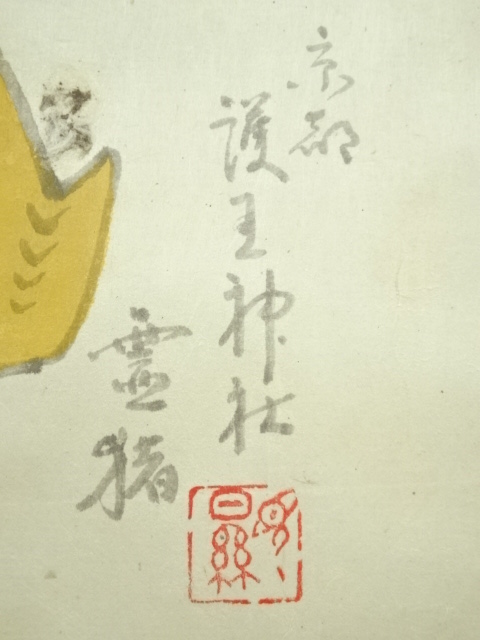 京都
護王神社
霊猪